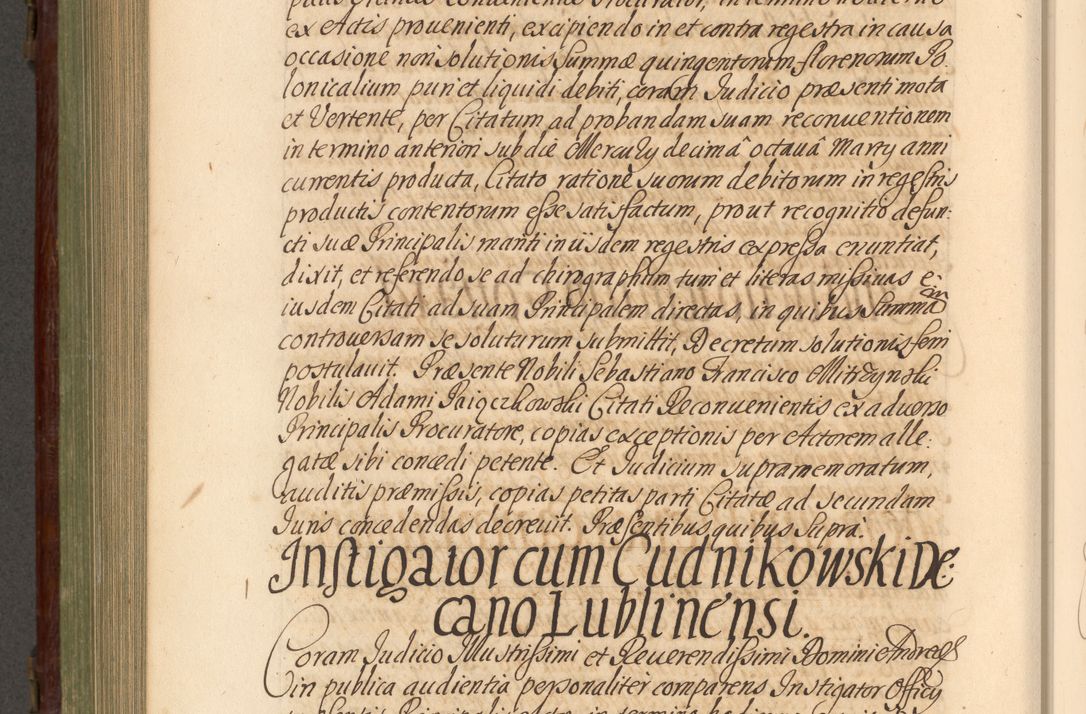 ex Actis prouenienti, excipiendo in et contra regestra in causa
occasione non solutionis summæ quingentorum florenorum Po-
lonicalium puri et liquidi debiti, coram Judicio præsenti mota
et Vertente, per Citatum ad probandam suam reconuentionem
in termino anteriori sub die Mercurÿ decimâ octauâ Martÿ anni
currentis producta, Citato rationè suorum debitorum in regestris
productis contentorum esse satisfactum, prout recognitio defun:
cti suæ Principalis mariti in iisdem regestris expressa enuntiat,
dixit, et referendo se ad chirographum tum et literas missiuas e-
iusdem Citati ad suam Principalem directas, in quibus summâ in
controuersam se soluturum submittit, Decretum solutionis ferri
postulauit. Præsente Nobili Sebastiano Francisco Mitrzynski
Nobilis Adami Paigczkowski Citati Reconuenientis ex aduerso
Principalis Procuratore, copias exceptionis per Actorem alle:
gatæ sibi concedi petente. Et Judicium supramemoratum,
auditis præmissis, copias petitas parti Citatæ ad secundam
Iuris concedendas decreuit. Præsentibus quibus supra.
Instigator cum Cudnikowski De:
cano Lublinensi.
Coram Judicio Illustrissimi et Reuerendissimi Domini Andreæ
in publica audientia personalitèr comparens Instigator Officÿ